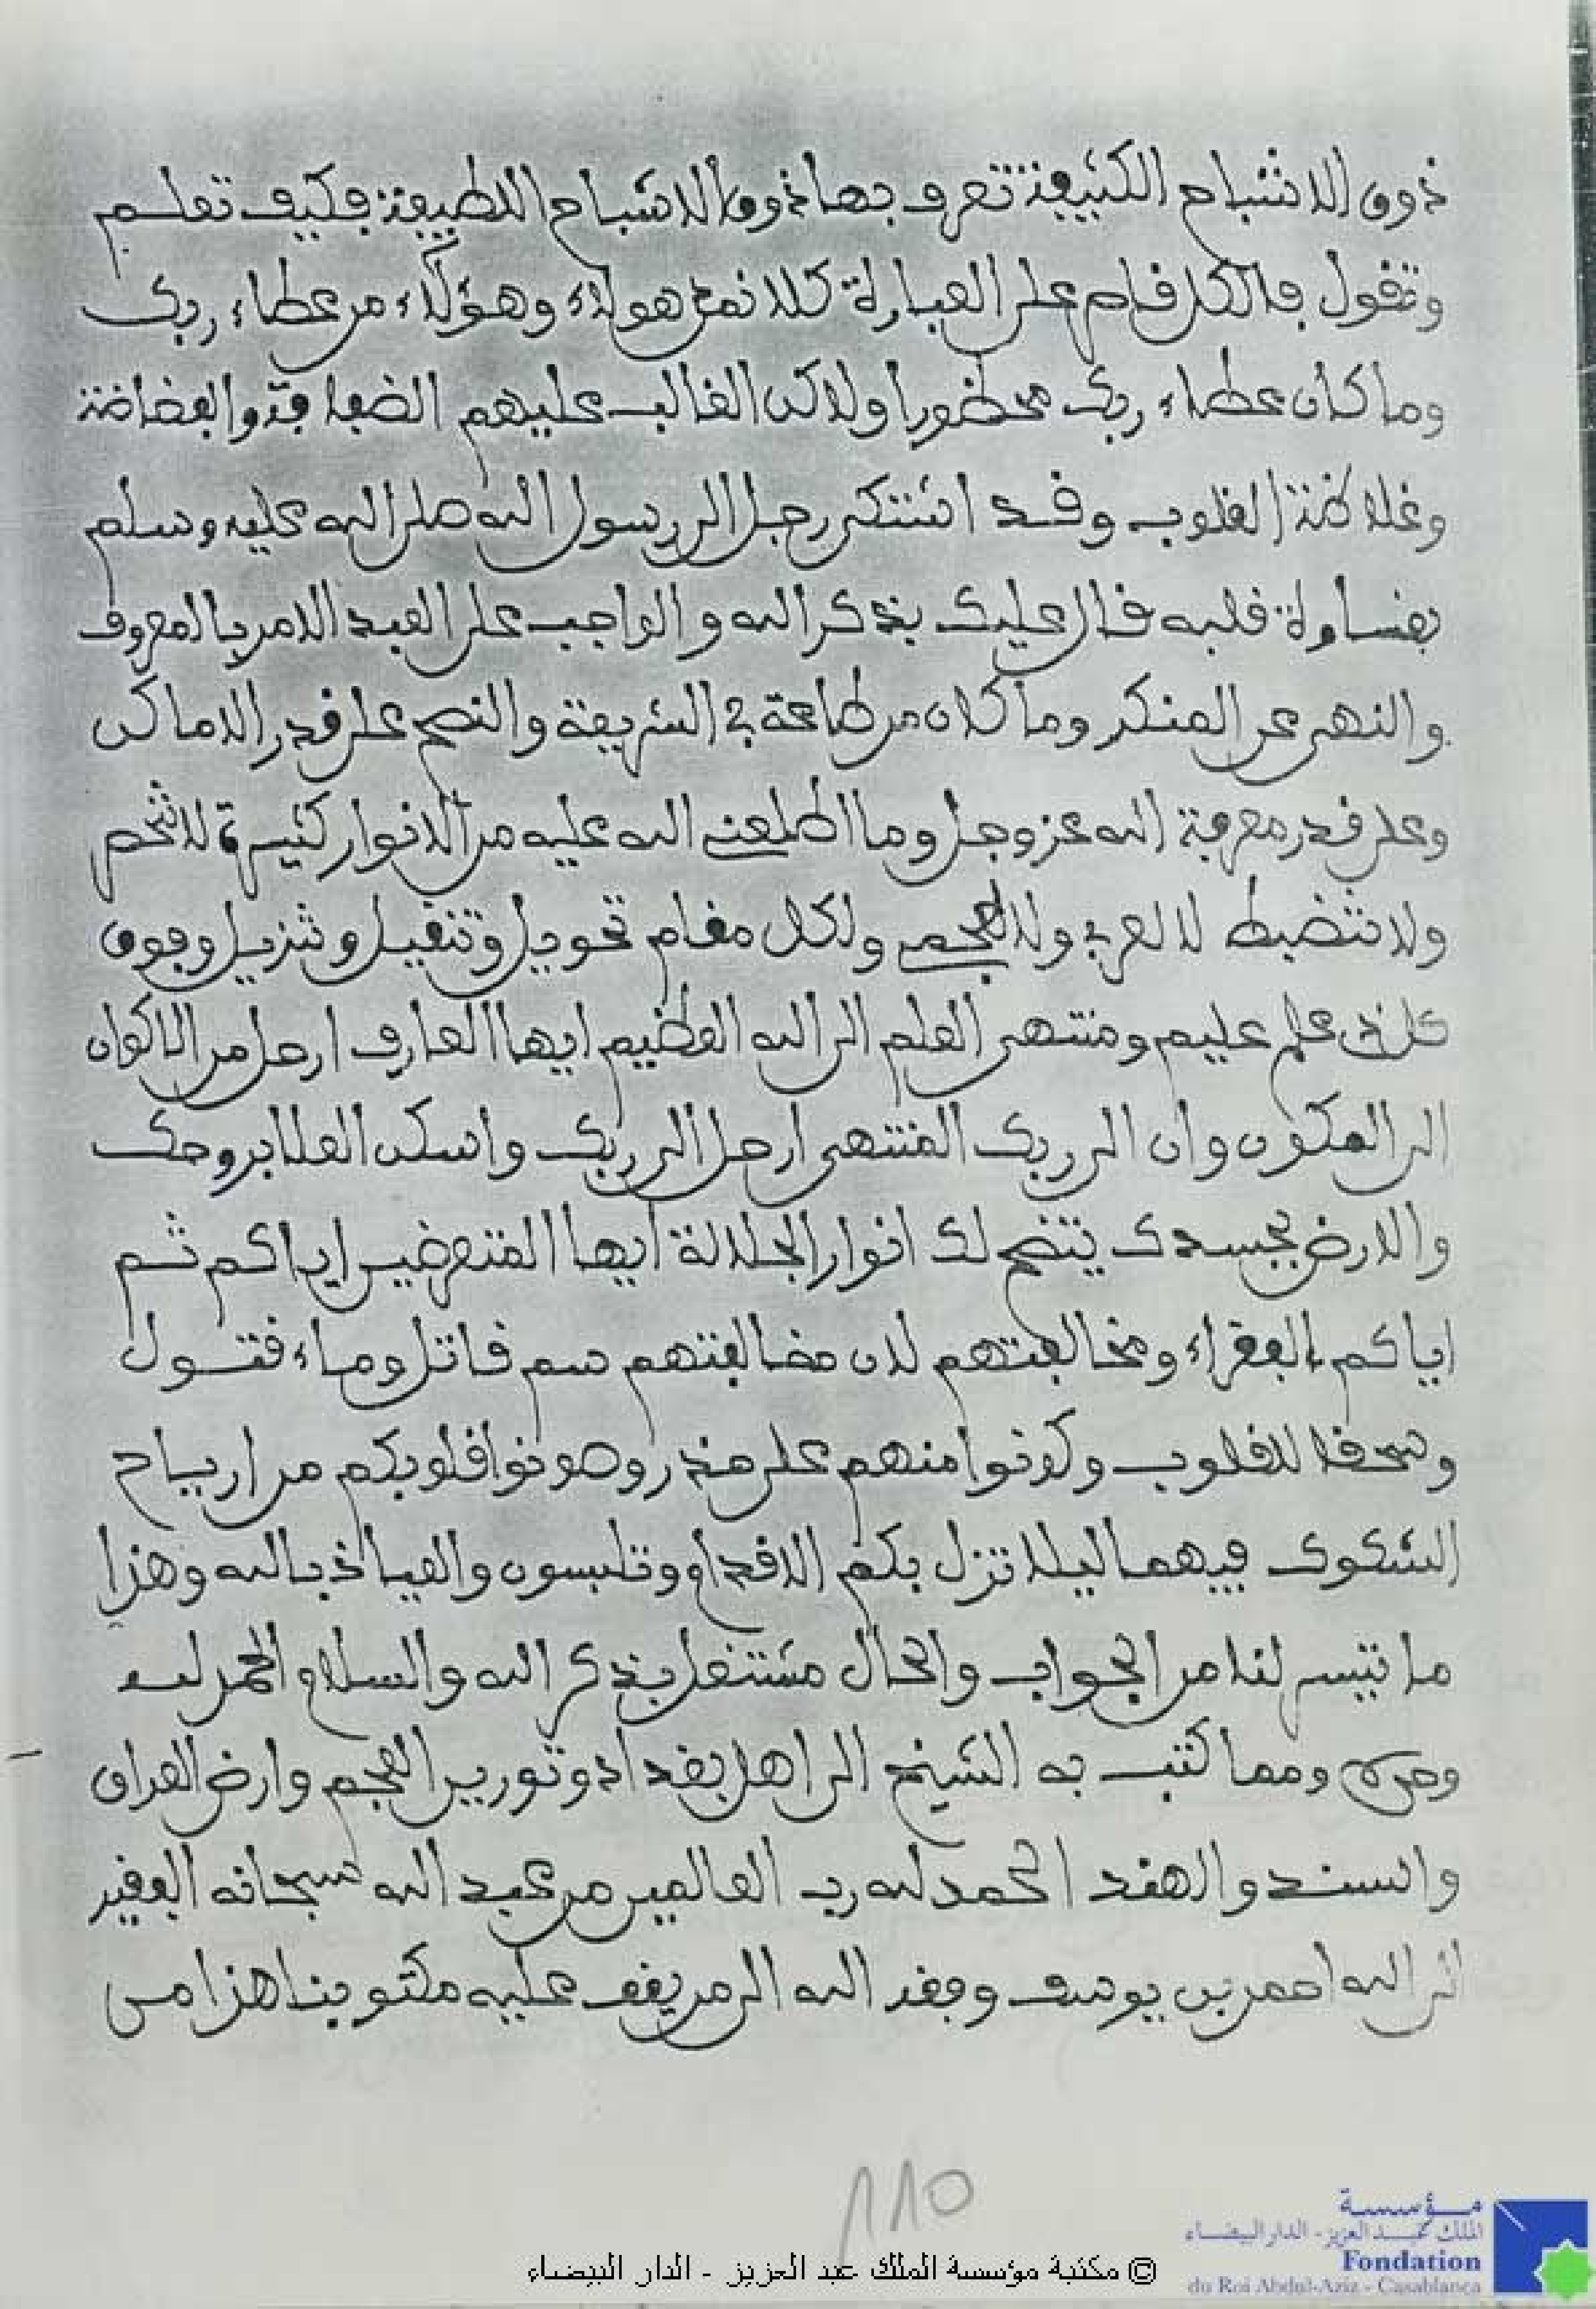 ذوي الاشباح الكثيفة تعرف بها ذوي الاشباح اللطيفة فكيف تعلم
وتقول فالكل قام على العبارة كلا نمد هولاء وهؤلاء من عطاء ربك
وما كان عطاء ربك محظورا ولاكن الغالب عليهم الضعافة والفضاضة
وغلاضة القلوب وقد اشتكى رجل الى رسول الله صلى الله عليه وسلم
بقساوة قلبه قال عليك بذكر الله والواجب على العبد الامر بالمعروف
والنهي عن المنكر وما كان من طاعة في الشريعة والنصح على قدر الاماكن
وعلى قدر معرفة الله عز وجل وما اطلعني الله عليه من الانوار كثيرة لا تنحصر
ولا تنضبط لا لعربي ولا لعجمي ولكل مقام تحويل وتنقيل وتنزيل وفوق
كل ذي علم عليم ومنتهى العلم الى الله العظيم ايها العارف ارحل من الاكوان
الى المكون وان الى ربك المنتهى ارحل الى ربك واسكن العلا بروحك
والارض بجسدك يتضح لك انوار الجلالة ايها المتعرضين اياكم ثم
اياكم بالفقراء ومخالفتهم لان مخالفتهم سم قاتل وماء قتول
وسحقا للقلوب وكونوا منهم على حذر وصونوا قلوبكم من ارياح
الشكوك فيهما ليلا تزل بكم الاقدام وتلبسون والعياذ بالله وهذا
ما تيسر لنا من الجواب والحال مشتغل بذكر الله والسلام الحمد لله
وحده ومما كتب به الشيخ الى اهل بغداد وتوريز العجم وارض العراق
والسند والهند الحمد لله رب العالمين من عبد الله سبحانه الفقير
الى الله احمد بن يوسف وفقه الله الى من يقف عليه مكتوبنا هذا من
١١٥
© مكتبة مؤسسة الملك عبد العزيز - الدار البيضاء
مؤسسة
الملك عبد العزيز - الدار البيضاء
Fondation
du Roi Abdul-Aziz - Casablanca